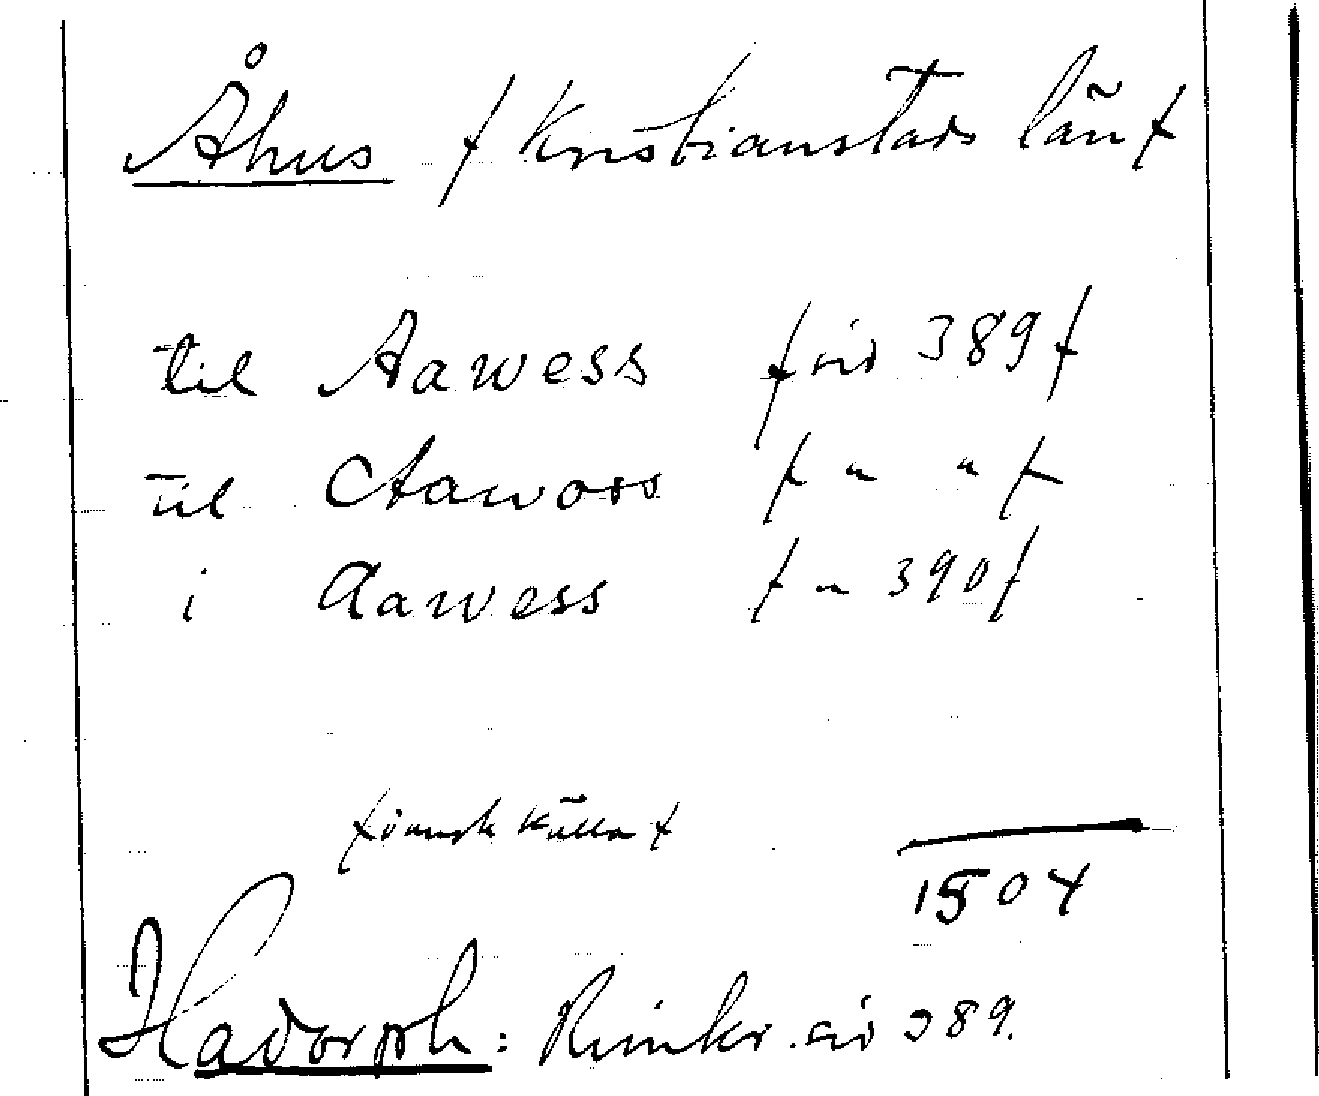 Åhus / Kristianstads län /
til Aawess / sid 389 /
til Aawoss / " " /
i Aawess / " 390 /
/ svensk källa /
1504
Hadorph: Rimkr. sid 389.